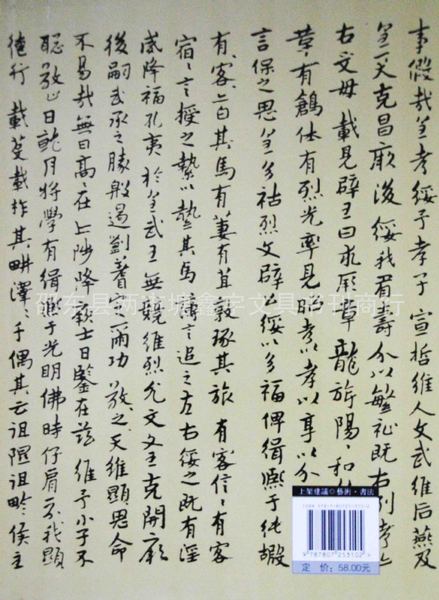 事假哉皇考綏予孝子宣哲維人文武維后燕及
皇天克昌厥後綏我眉壽介以繁祉既右烈考亦
右文母載見辟王曰求厥章龍旂陽〻和
革有鶬休有烈光率見昭考以孝以享以介
言保之思皇多祜烈文辟公綏以多福俾緝熙于純嘏
有客〻亦白其馬有萋有苴敦琢其旅有客信〻有客
宿〻言授之縶以縶其馬薄言追之左右綏之既有淫
威降福孔夷於皇武王無競維烈允文文王克開厥
後嗣武承之勝殷遏劉耆定爾功敬之天維顯思命
不易哉無曰高〻在上陟降厥士日鑒在茲維予小子不
聰敬止日就月將學有緝熙于光明佛時仔肩示我顯
德行載芟載柞其畊澤〻千偶其云徂隰徂畛侯主
上架建議◎藝術·書法
9 787807 253102
定 价: 58.00元